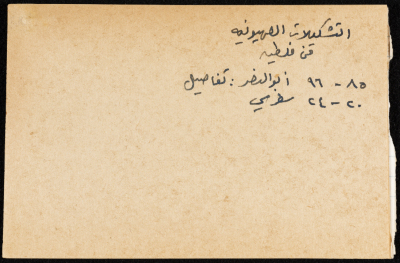 التشكيلات الصهيونية
في فلسطين
٨٥ - ٩٦ أبو النضر : تفاصيل
٢٠ - ٢٤